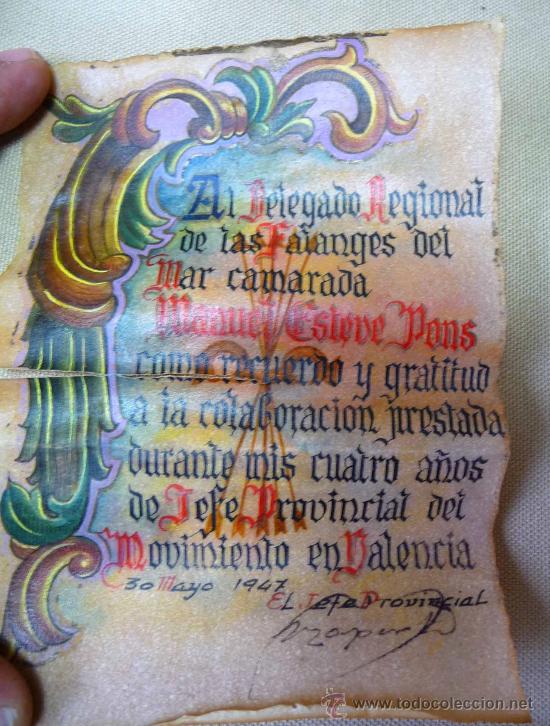 Al Delegado Regional
de las Falanges del
Mar camarada
Manuel Esteve Pons
como recuerdo y gratitud
a la colaboracion prestada
durante mis cuatro años
de Jefe Provincial del
Movimiento en Valencia
30 Mayo 1947
EL Jefe Provincial
www.todocoleccion.net